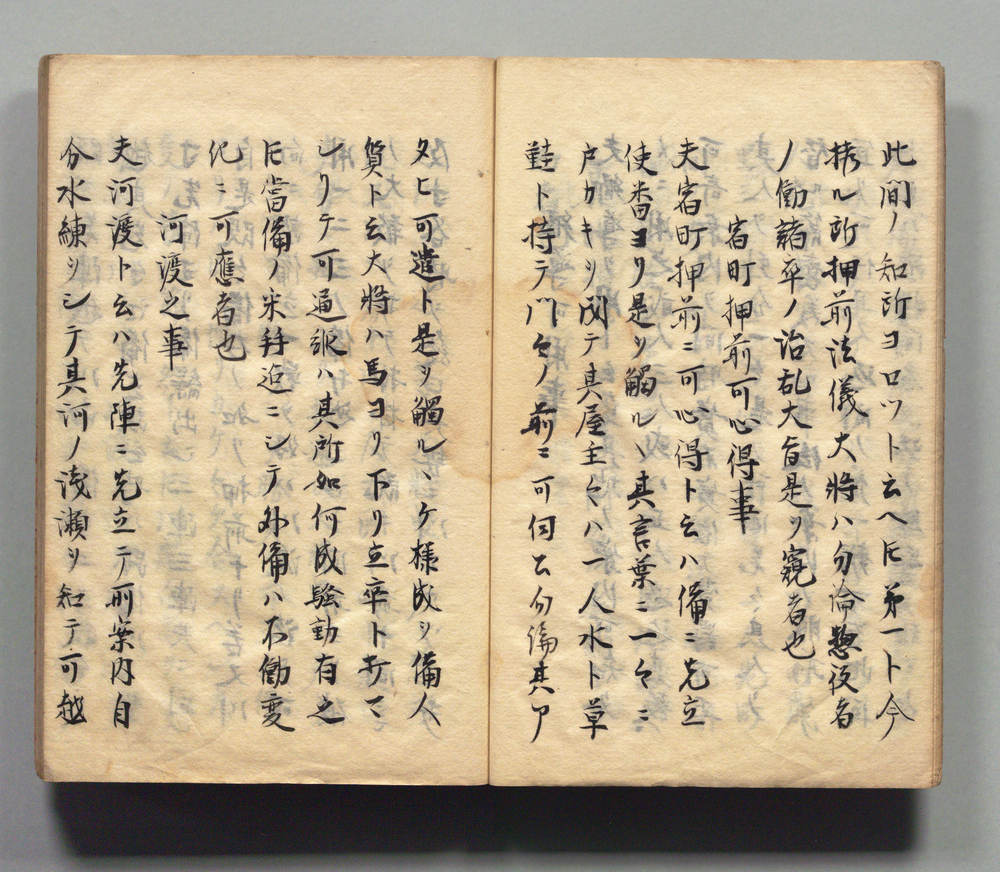 此間ノ知所ヨロツト云ヘ𪜈第一ト今
捘ル所押前法儀大將ハ勿論惣役者
ノ働諸卒ノ治乱大旨是ヲ窺者也
宿町押前可心得事
夫宿町押前ニ可心得ト云ハ備ニ先立
使番ヨリ是ヲ觸ル丶其言葉ニ一々ニ
戸カキヲ閉テ其屋主々ハ一人水ト草
鞋ト持テ門々ノ前ニ可伺公勿論其
タヒ可遣ト是ヲ觸ル丶ケ様成ヲ備人
質ト云大將ハ馬ヨリ下リ立卒ト
シリテ可通縦ハ其所如何成騒動有之
𪜈當備ノ米拜迄ニシテ外備ハ不働変
化ニ可應者也
河渡之事
夫河渡ト云ハ先陣ニ先立テ所案内自
分水練ヲシテ其河ノ浅瀬ヲ知テ可越